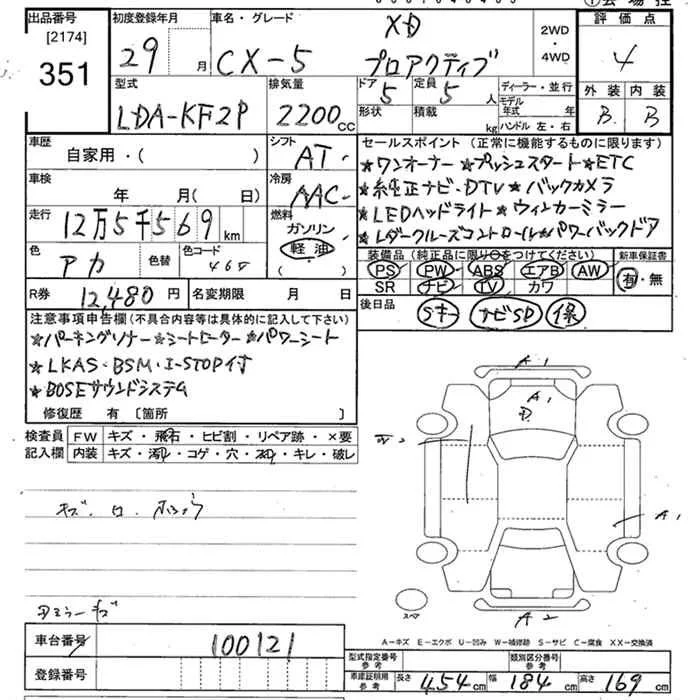 出品番号
[2174]
351
初度登録年月
29 月
車名・グレード
CX-5 XD
プロアクティブ
2WD
・
4WD
評価点
4
型式
LDA-KF2P
排気量
2200cc
ドア
5
定員
5人
形状
積載
kg
ディーラー・並行
モデル年式 年
ハンドル 左・右
外装 内装
B B
車歴
自家用・( )
シフト
AT
車検
年 月( 日)
冷房
AAC
走行
12万5千569km
燃料
ガソリン
軽油
( )
色
アカ
色替
色コード
46V
R券
12,480円
名変期限 月 日
セールスポイント(正常に機能するものに限ります)
★ワンオーナー★プッシュスタート★ETC
★純正ナビ・DTV★バックカメラ
★LEDヘッドライト★ウィンカーミラー
★レダークルーズコントロール★パワーバックドア
装備品(純正品に限り○をつけてください)
PS PW ABS エアB AW
SR ナビ TV カワ
新車保証書
有・無
後日品
Sキー ナビSD 保
注意事項申告欄(不具合内容等は具体的に記入して下さい)
★パーキングソナー★シートヒーター★パワーシート
★LKAS・BSM・I-STOP付
★BOSEサウンドシステム
修復歴 有〔箇所 〕
検査員
記入欄
FW キズ・飛石・ヒビ割・リペア跡・×要
内装 キズ・汚れ・コゲ・穴・スレ・キレ・破レ
A1
A1
A1
A2
スペア
A-キズ E-エクボ U-凹み W-補修跡 S-サビ C-腐食 XX-交換済
車台番号
100121
登録番号
型式指定番号
参考
類別区分番号
参考
車庫証明用
参考
長さ 454cm 幅 184cm 高さ 169cm